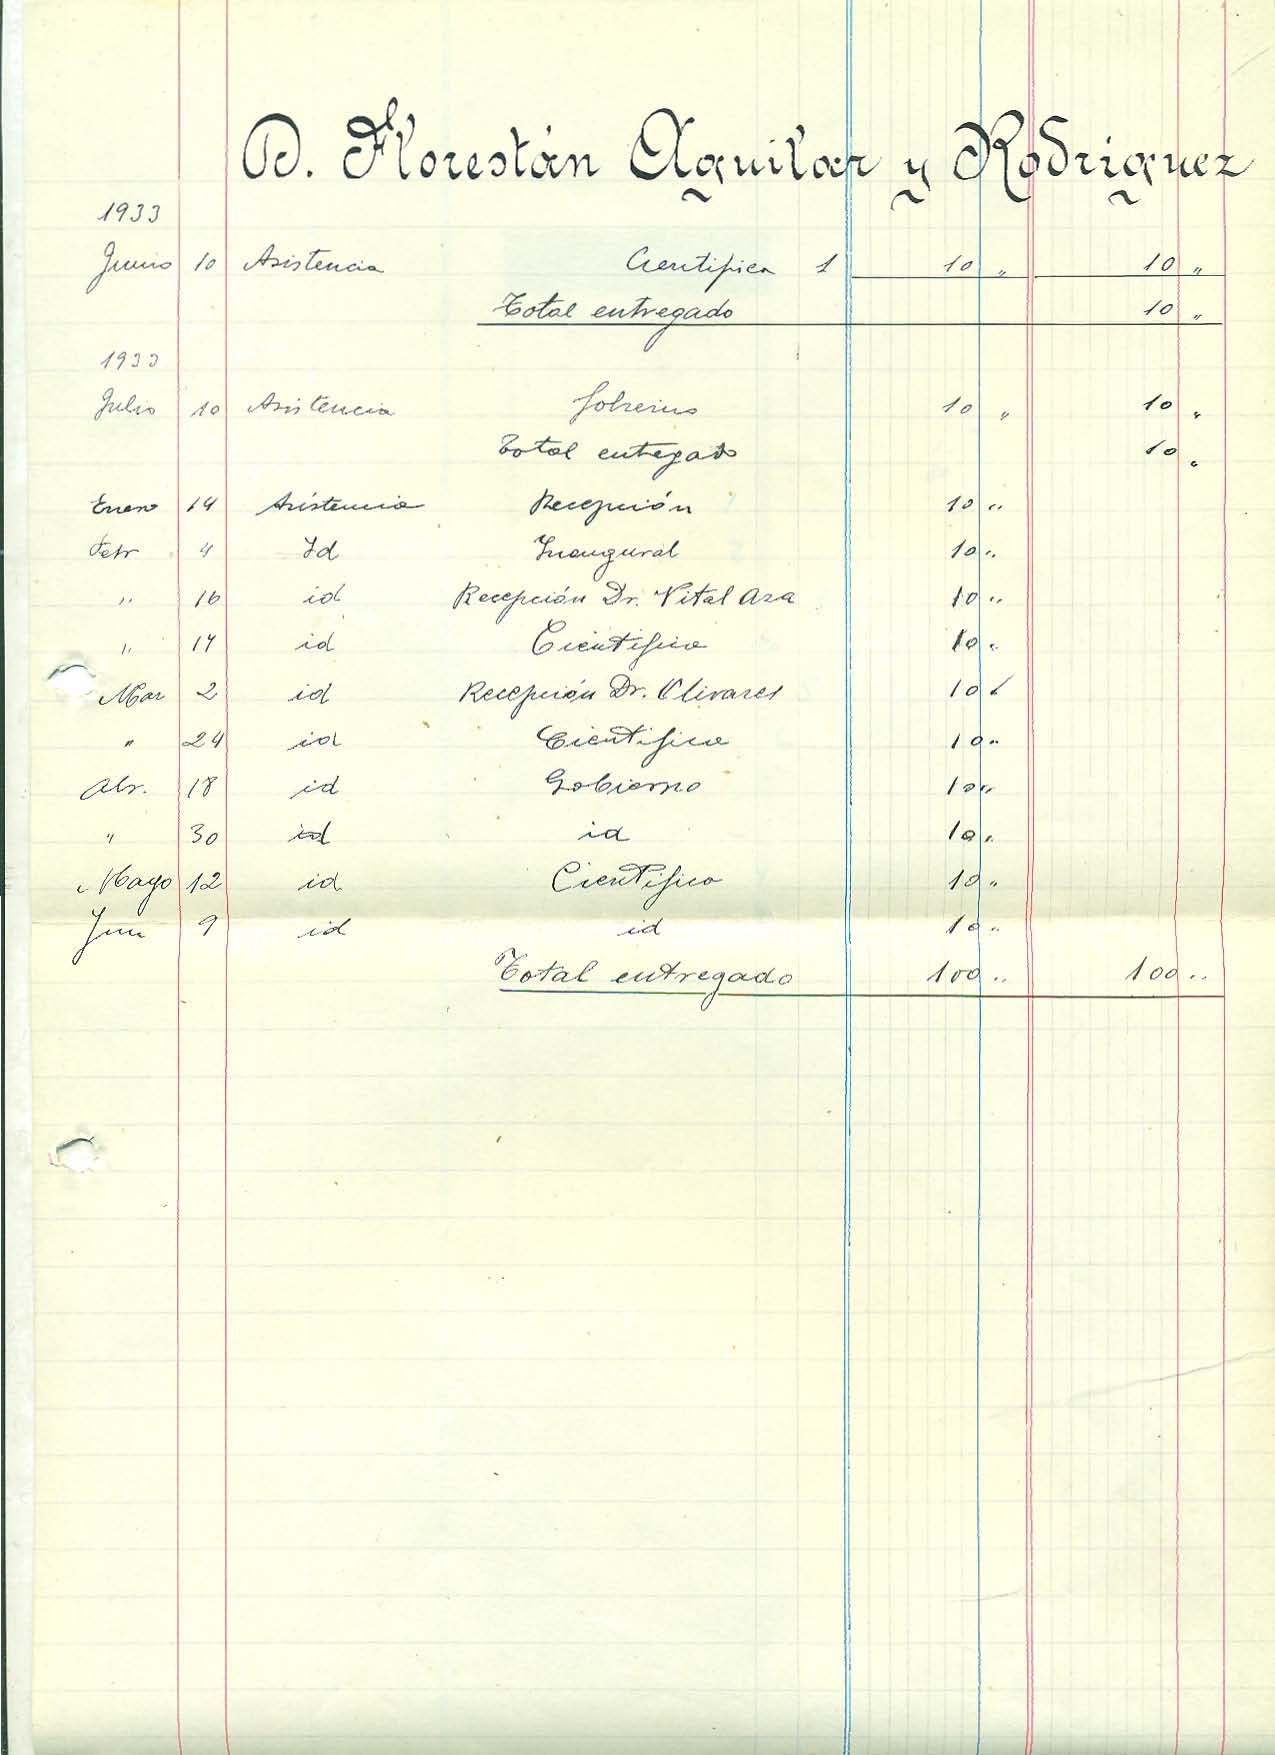 D. Florestán Aguilar y Rodriguez
1933
Junio 10 Asistencia Cientifica 1 10 " 10 "
Total entregado 10 "
1933
Julio 10 Asistencia 10 " 10 "
Total entregado 10 "
Enero 14 Asistencia Recepción 10 "
Febr 4 Id Inaugural 10 "
" 16 id Recepción Dr. Vital Aza 10 "
" 17 id Cientifica 10 "
Mar 2 id Recepción Dr. Olivares 10 "
" 24 id Cientifica 10 "
Abr. 18 id Gobierno 10 "
" 30 id id 10 "
Mayo 12 id Cientifica 10 "
Jun 9 id id 10 "
Total entregado 100 " 100 "